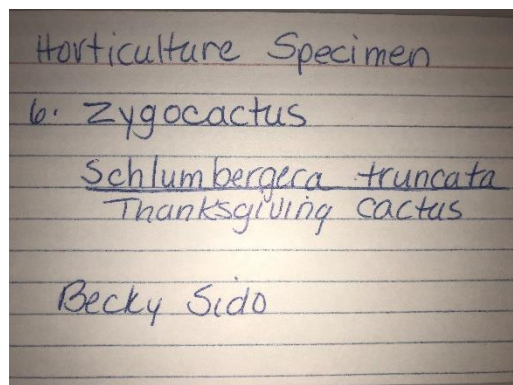 Horticulture Specimen
6. Zygocactus
Schlumbergera truncata
Thanksgiving cactus
Becky Sido